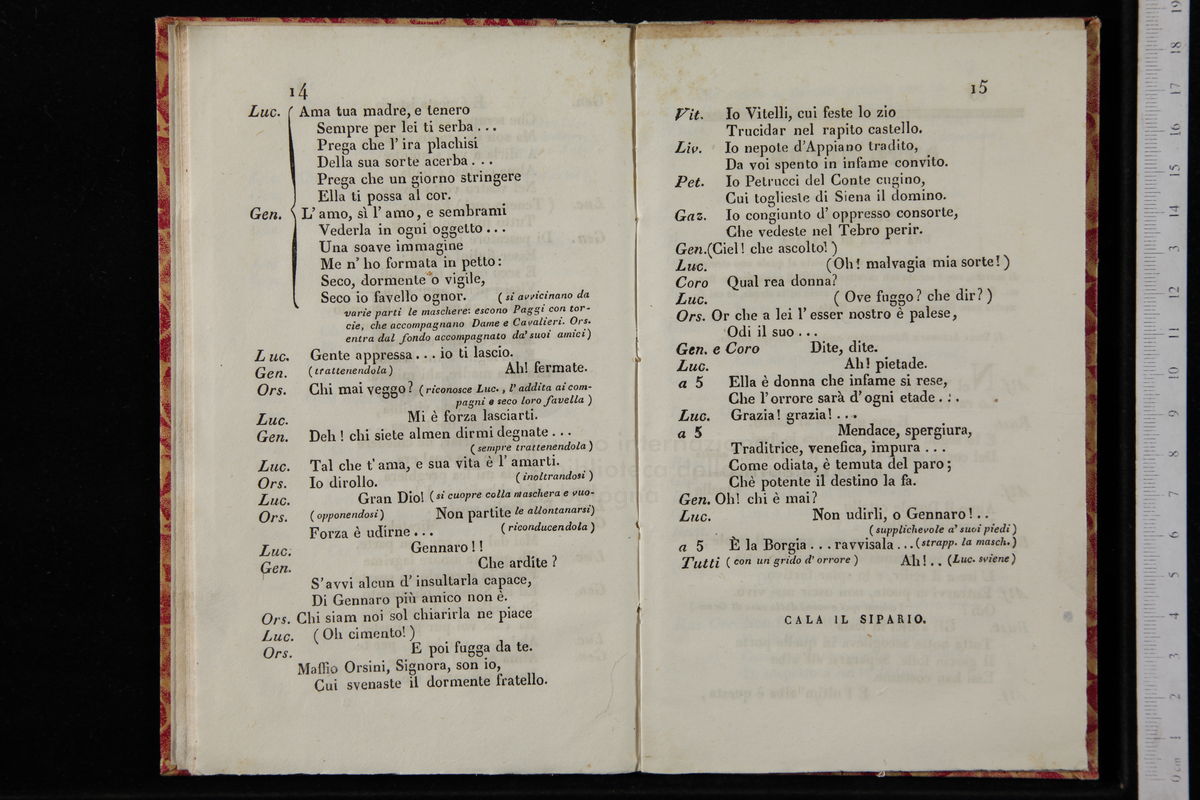 14
Luc. Ama tua madre, e tenero
Sempre per lei ti serba . . .
Prega che l' ira plachisi
Della sua sorte acerba . . .
Prega che un giorno stringere
Ella ti possa al cor.
Gen. L' amo, sì l' amo, e sembrami
Vederla in ogni oggetto . . .
Una soave immagine
Me n' ho formata in petto:
Seco, dormente o vigile,
Seco io favello ognor. ( si avvicinano da
varie parti le maschere: escono Paggi con tor-
cie, che accompagnano Dame e Cavalieri. Ors.
entra dal fondo accompagnato da' suoi amici )
Luc. Gente appressa . . . io ti lascio.
Gen. ( trattenendola ) Ah! fermate.
Ors. Chi mai veggo? ( riconosce Luc., l' addita ai com-
pagni e seco loro favella )
Luc. Mi è forza lasciarti.
Gen. Deh! chi siete almen dirmi degnate . . .
( sempre trattenendola )
Luc. Tal che t' ama, e sua vita è l' amarti.
Ors. Io dirollo. ( inoltrandosi )
Luc. Gran Dio! ( si cuopre colla maschera e vuo-
Ors. ( opponendosi ) Non partite le allontanarsi)
Forza è udirne . . . ( riconducendola )
Luc. Gennaro!!
Gen. Che ardite?
S' avvi alcun d' insultarla capace,
Di Gennaro più amico non è.
Ors. Chi siam noi sol chiarirla ne piace
Luc. ( Oh cimento! )
Ors. E poi fugga da te.
Maffio Orsini, Signora, son io,
Cui svenaste il dormente fratello.
15
Vit. Io Vitelli, cui feste lo zio
Trucidar nel rapito castello.
Liv. Io nepote d'Appiano tradito,
Da voi spento in infame convito.
Pet. Io Petrucci del Conte cugino,
Cui toglieste di Siena il domino.
Gaz. Io congiunto d' oppresso consorte,
Che vedeste nel Tebro perir.
Gen. (Ciel! che ascolto! )
Luc. (Oh! malvagia mia sorte! )
Coro Qual rea donna?
Luc. ( Ove fuggo? che dir? )
Ors. Or che a lei l' esser nostro è palese,
Odi il suo . . .
Gen. e Coro Dite, dite.
Luc. Ah! pietade.
a 5 Ella è donna che infame si rese,
Che l' orrore sarà d' ogni etade . . .
Luc. Grazia! grazia! . . .
a 5 Mendace, spergiura,
Traditrice, venefica, impura . . .
Come odiata, è temuta del paro;
Chè potente il destino la fa.
Gen. Oh! chi è mai?
Luc. Non udirli, o Gennaro! . .
( supplichevole a' suoi piedi )
a 5 È la Borgia . . . ravvisala . . . (strapp. la masch. )
Tutti ( con un grido d' orrore ) Ah! . . (Luc. sviene )
CALA IL SIPARIO.